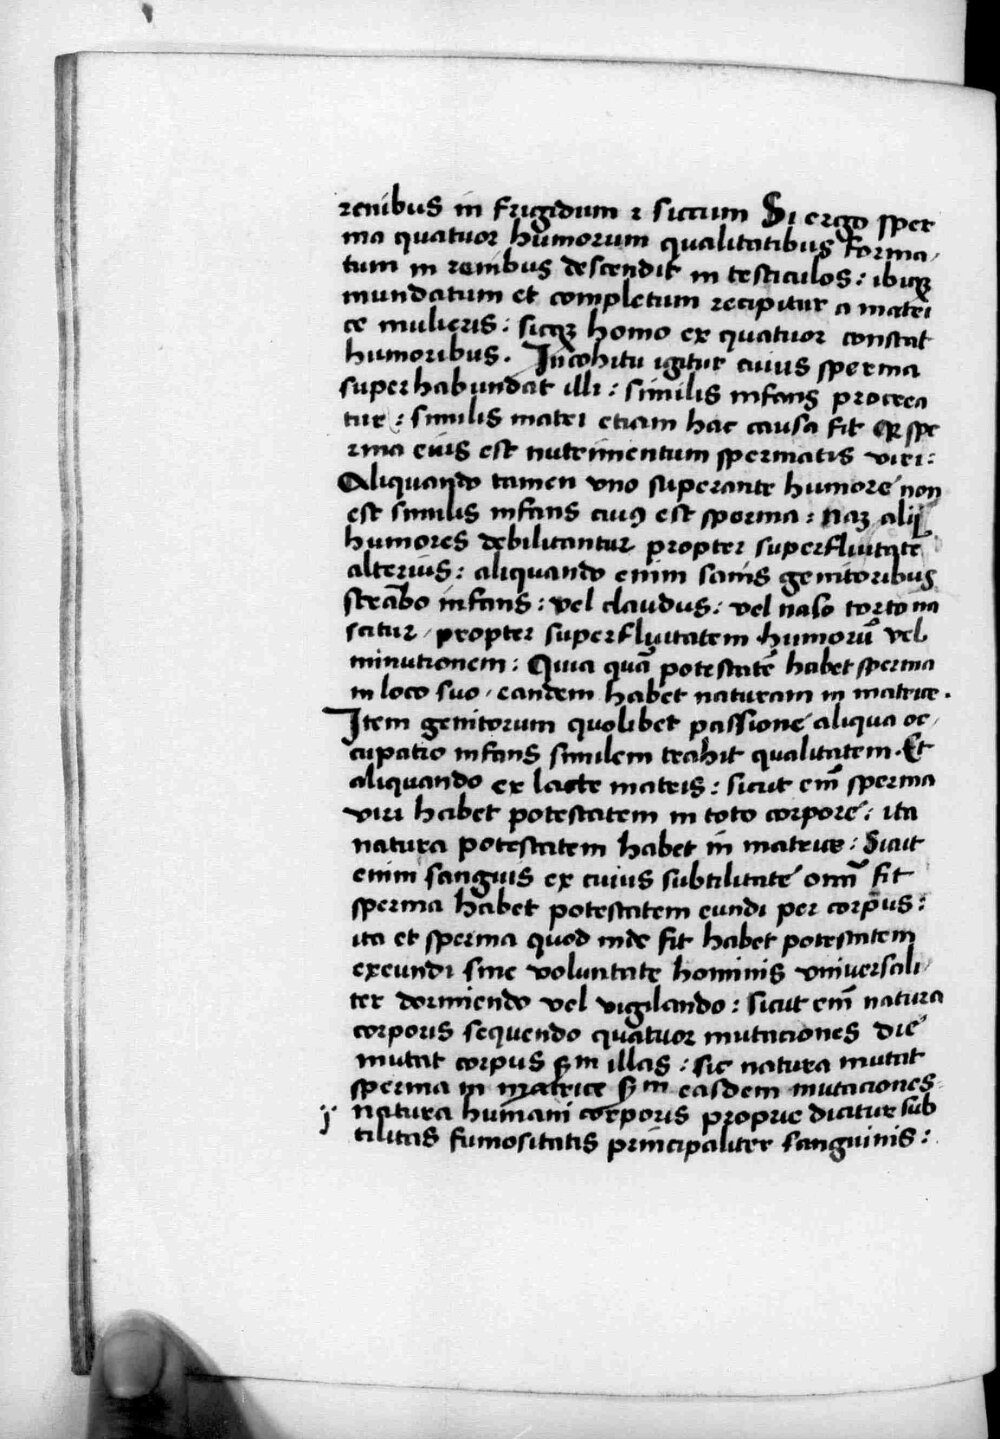 renibus in frigidum ⁊ siccum Si ergo sper
ma quatuor humorum qualitatibus forma⸗
tum in renibus descendit in testiculos : ibiqꝫ
mundatum et completum recipitur a matri
ce mulieris : sicqꝫ homo ex quatuor constat
humoribus . In cohitu igitur cuius sperma
superhabundat illi : similis infans procrea
tur : similis matri etiam hac causa fit qꝛ spe
rma eius est nutrimentum spermatis viri :
Aliquando tamen vno superante humore non
est similis infans cuiꝰ est sperma : Naꝫ alij
humores debilitantur propter superfluitate
alterius : aliquando enim sanis genitoribus
strabo infans : vel claudus : vel naso torto na
scitur / propter superfluitatem humorū vel
minutionem : Quia quā potestatē habet sperma
in loco suo / eandem habet naturam in matrice .
Item genitorum quolibet passione aliqua oc⸗
cupatio infans similem trahit qualitatem . Et
aliquando ex lacte matris : sicut em̄ sperma
viri habet potestatem in toto corpore : ita
natura potestatem habet in matrice : Sicut
enim sanguis ex cuius subtilitate om̄ fit
sperma habet potestatem eundi per corpus :
ita et sperma quod inde fit habet potestatem
exeundi sine voluntate hominis vniuersali⸗
ter dormiendo vel vigilando : sicut em̄ natura
corporis sequendo quatuor mutaciones die
mutat corpus ẜm illas : sic natura mutat
sperma in matrice ẜm easdem mutaciones
natura humani corporis proprie dicitur sub
tilitas fumositatis principaliter sanguinis :